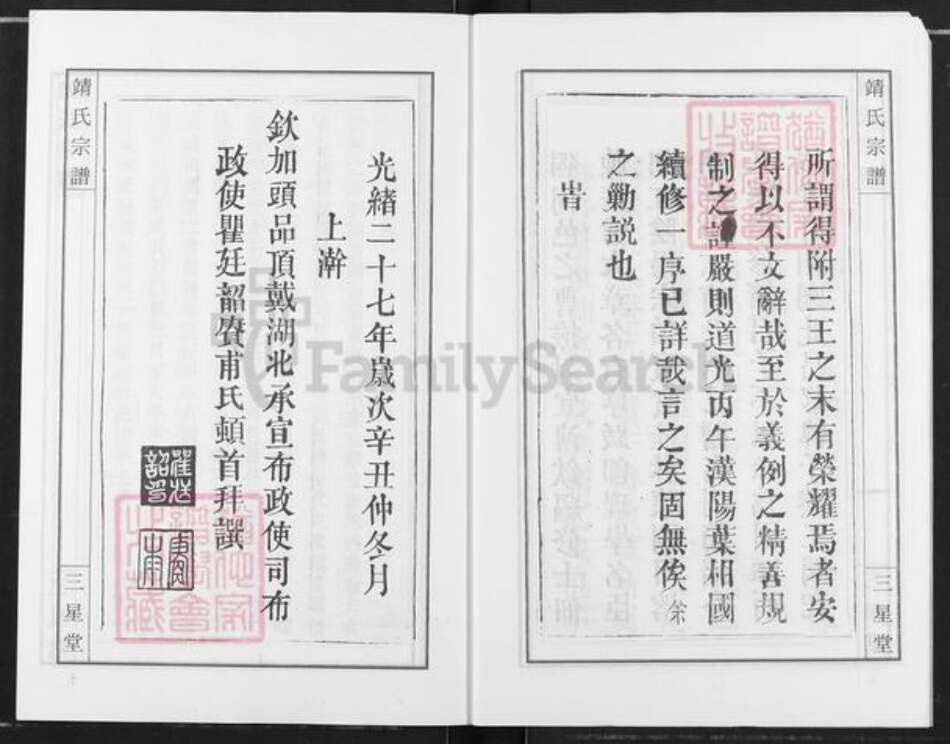 靖氏宗譜
三星堂
所謂得附三王之末有榮耀焉者安
得以不文辭哉至於義例之精善規
制之謹嚴則道光丙午漢陽葉相國
續修一序已詳哉言之矣固無俟余
之勦說也
旹
光緒二十七年歲次辛丑仲冬月
上澣
欽加頭品頂戴湖北承宣布政使司布
政使瞿廷韶賡甫氏頓首拜譔
瞿廷韶印
賡甫
靖氏宗譜
三星堂
FamilySearch